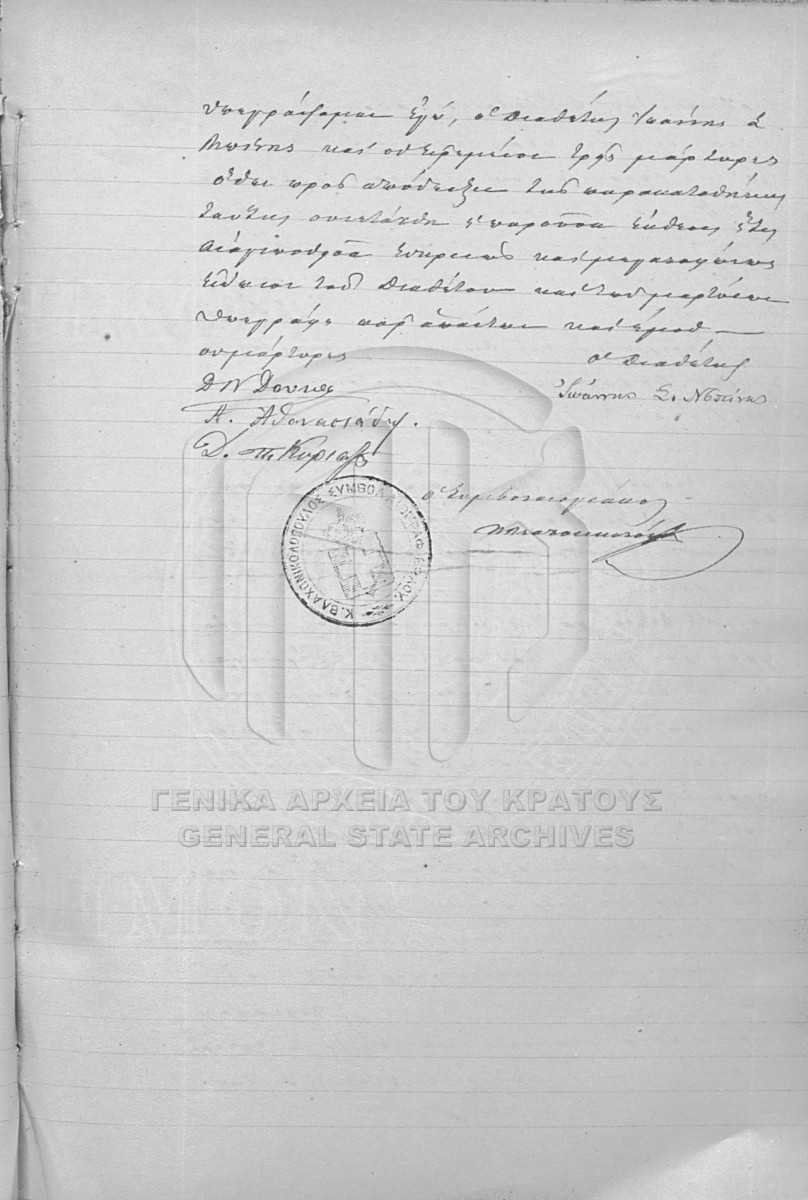 υπεγράφομεν Εγώ, ο Διαθέτης Ιωάννης Σ
Μπίνης και οι ειρημένοι τρεις μάρτυρες
Όθεν προς απόδειξιν της παρακαταθήκης
ταύτης συνετάχθη η παρούσα έκθεσις ήτις
αναγνωσθείσα ευκρινώς και μεγαλοφώνως
ενώπιον του Διαθέτου και των μαρτύρων
υπεγράφη παρ' απάντων και εμού
οι μάρτυρες
ο Διαθέτης
Δ Ν Δούκας
Ιωάννης Σ. Μπίνης
Α. Αθανασιάδης.
Δ. Κυριαζή
ο Συμβολαιογράφος
Κ. ΒΛΑΧΟΝΙΚΟΛΟΠΟΥΛΟΣ ΣΥΜΒΟΛΑΙΟΓΡΑΦ
ΓΕΝΙΚΑ ΑΡΧΕΙΑ ΤΟΥ ΚΡΑΤΟΥΣ
GENERAL STATE ARCHIVES